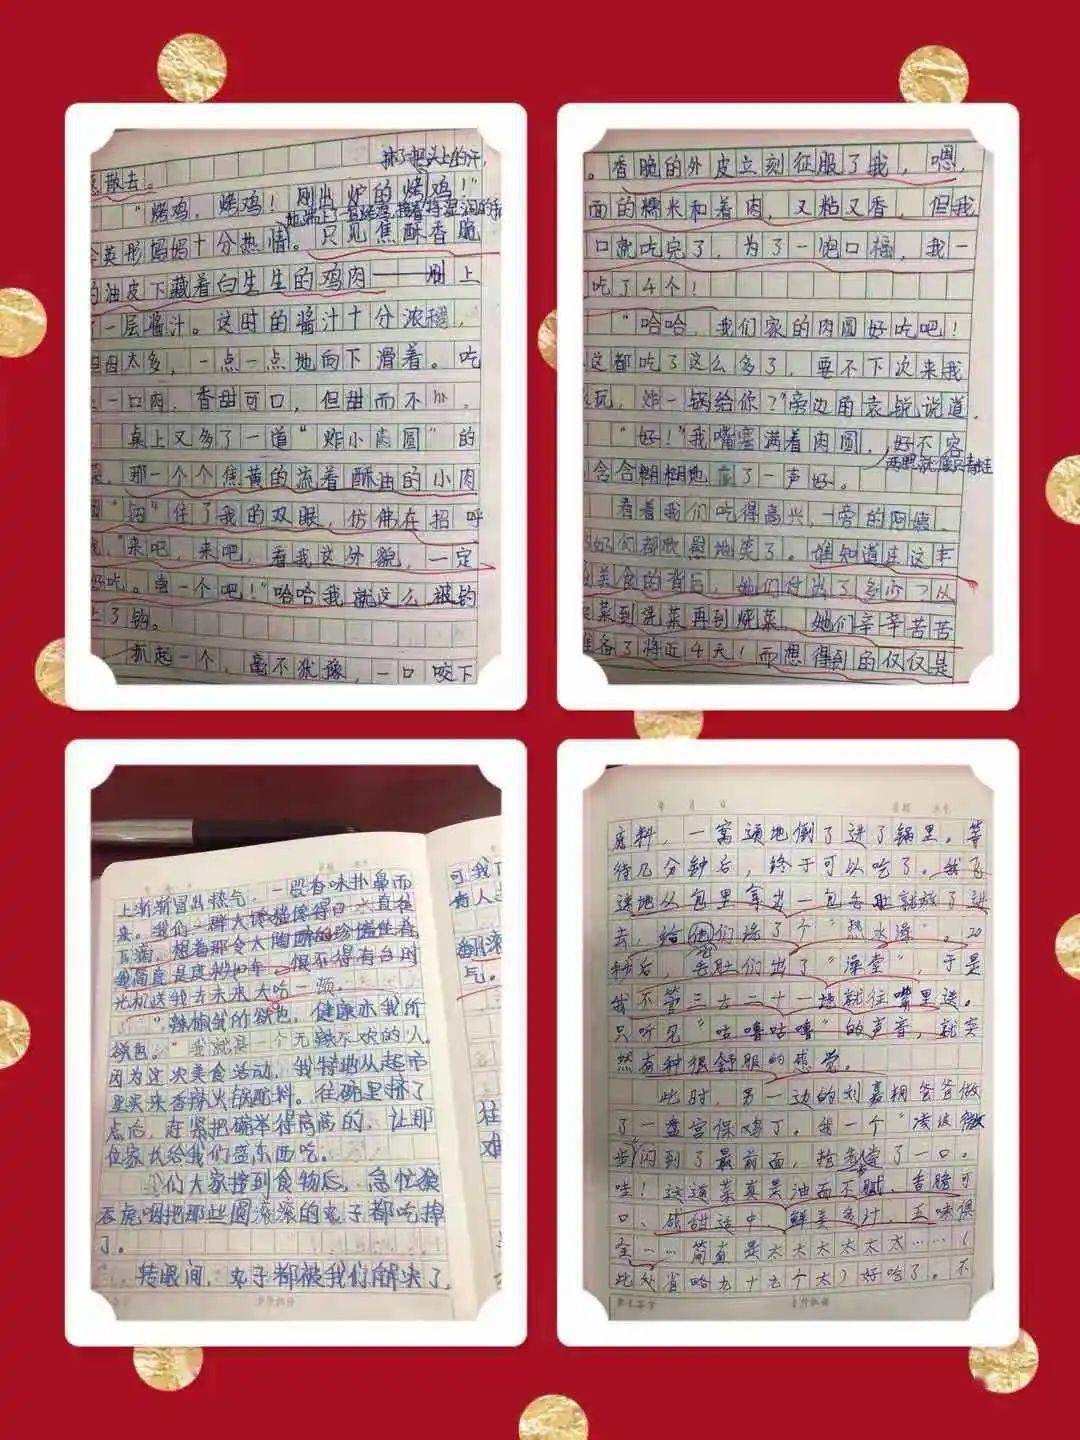 抹了把头上的汗，
散去。
“烤鸡，烤鸡！刚出炉的烤鸡！”
英彤妈妈十分热情。只见焦酥香脆
油皮下藏着白生生的鸡肉——刷上
一层酱汁。这时的酱汁十分浓稠，
太多，一点一点地向下滑着。吃
一口肉，香甜可口，但甜而不
桌上又多了一道“炸小肉圆”的
那一个个焦黄的流着酥油的小肉
“钩”住了我的双眼，仿佛在招呼
“来吧，来吧，看我这外貌，一定
好吃。尝一个吧！”哈哈我就这么被钓
上了钩。
抓起一个，毫不犹豫，一口咬下
。香脆的外皮立刻征服了我，嗯，
面的糯米和着肉，又粘又香，但我
口就吃完了，为了一饱口福，我一
吃了4个！
“哈哈，我们家的肉圆好吃吧！
这都吃了这么多了，要不下次来我
玩，炸一锅给你？”旁边的袁锐说道。
“好！”我嘴塞满着肉圆，好不容
两腮就像只青蛙
含含糊糊地 了一声好。
看着我们吃得高兴，一旁的阿姨、
们都欣慰地笑了。谁知道在这丰
美食的背后，她们付出了多少？从
菜到洗菜再到烧菜，她们辛辛苦苦
准备了将近4天！而想得到的仅仅是
上渐渐冒出热气，一股香味扑鼻而
来。我们一群大馋猫馋得口水直往
下滴，想着那令大陶醉的珍馐佳肴
我简直是度秒如年，恨不得有台时
光机送我去未来大哈一顿。
“辣椒我所欲也，健康亦我所
欲也。”我就是一个无辣不欢的人。
因为这次美食活动，我特地从超市
里买来香辣火锅配料。往碗里挤了
点后，赶紧把碗举得高高的，让那
位家长给我们盛东西吃。
们大家接到食物后，急忙狼
吞虎咽把那些圆滚滚的丸子都吃掉
了。
转眼间，丸子都被我们解决了，
可我
有人
年 月 日
底料，一窝通地倒了进了锅里。等
待几分钟后，终于可以吃了。我飞
速地从包里拿出一包毛肚就放了进
去，给它们洗了个“热水澡”。20
秒后，毛肚们出了“澡堂”，于是
我不管三七二十一地就往嘴里送。
只听见“咕噜咕噜”的声音，就突
然有种很舒服的感觉。
此时，另一边的刘嘉栩爸爸做
了一盘宫保鸡丁。我一个“凌波微
步”闪到了最前面，抢 了一口。
哇！这道菜真是油而不腻、香脆可
口、咸甜适中、鲜美多汁、五味俱
全……简直是太太太太太太……（
此处省略九十九个太）好吃了。不
家长签字